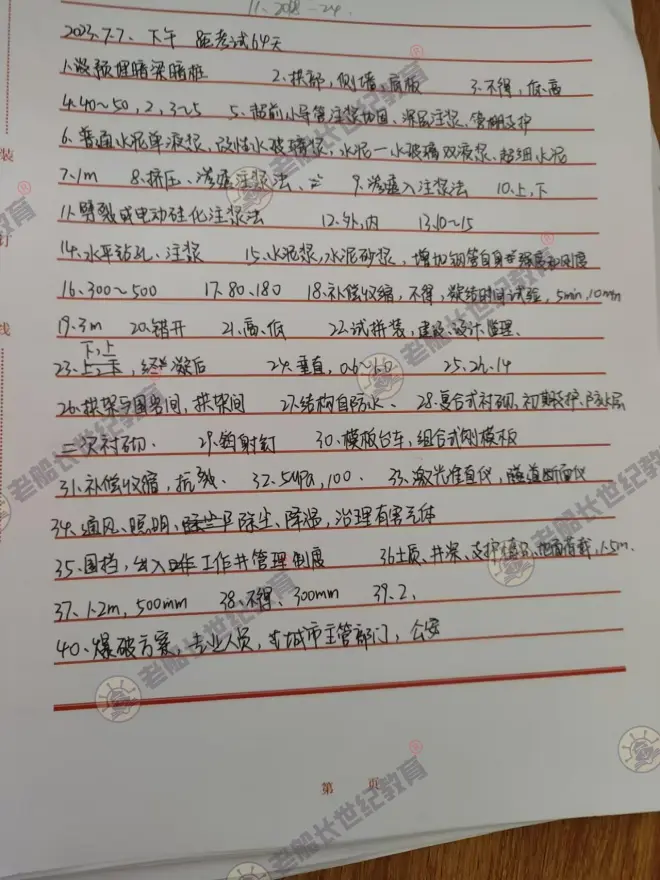 11、2018-24.
2023.7.7、下午 距考试64天
1.将预埋暗梁暗框 2、拱部,侧墙,底板 3.不得,低.高
4.40~50,2,3~5 5、超前小导管注浆加固、深层注浆、管棚支护
6、普通水泥单液浆、改性水玻璃浆、水泥一水玻璃双液浆、超细水泥
7、1m 8、挤压、渗透注浆法、 9、渗透入注浆法 10.上,下
11、劈裂或电动硅化注浆法 12.外,内 13.10~15
14.水平钻孔、注浆 15、水泥浆,水泥砂浆,增加钢管自身强度和刚度
16.300~500 17.80.180 18.补偿收缩,不得,凝结时间试验,5min,10min
19.3m 20.错开 21.高、低 22.试拼装,建设、设计、监理、
下,上
23.上,下,终凝后 24.垂直,0.6~1.0 25.2h.14
26、拱架与围岩间,拱架间 27.结构自防水、 28、复合式衬砌、初期支护、防水层
二次衬砌、 29、钩射钉 30、模板台车,组合式钢模板
31.补偿收缩,抗裂、 32.5MPa,100、 33、激光准直仪,隧道断面仪
34、通风、照明、除尘、降温,治理有害气体
35、围挡,出入工作井管理制度 36土质、井深、支护情况、地面荷载,1.5m.
37、1.2m,500mm 38、不得、300mm 39、2、
40、爆破方案、专业人员,城市主管部门,公安
第 页
装
订
线
老船长世纪教育
老船长世纪教育
老船长世纪教育
老船长世纪教育
老船长世纪教育